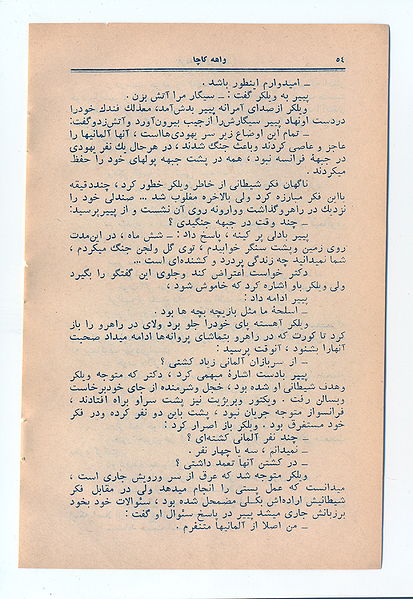 ٥٤
واهه کاچا
ـ امیدوارم اینطور باشد .
پییر به ویلکر گفت : ـ سیگار مرا آتش بزن .
ویلکر ازصدای آمرانه پییر بدش‌آمد، معذلك فندك خودرا
دردست اونهاد پییر سیگارش‌را ازجیب بیرون‌آورد وآتش‌زدوگفت:
ـ تمام این اوضاع زیر سر یهودی‌هااست ، آنها آلمانیها را
عاجز و عاصی کردند وباعث جنگ شدند ، در هرحال یك نفر یهودی
در جبههٔ فرانسه نبود ، همه در پشت جبهه پولهای خود را حفظ
میکردند .
ناگهان فکر شیطانی از خاطر ویلکر خطور کرد ، چنددقیقه
بااین فکر مبارزه کرد ولی بالاخره مغلوب شد ... صندلی خود را
نزدیك در راهروگذاشت ووارونه روی آن نشست و از پییرپرسید:
ـ چند وقت در جبهه جنگیدی ؟
پییر بادلی پر کینه ، پاسخ داد : ـ شش ماه ، در این‌مدت
روی زمین وپشت سنگر خوابیدم ، توی گل ولجن جنگ میکردم ،
شما نمیدانید چه زندگی پردرد و کشنده‌ای است ...
دکتر خواست اعتراض کند وجلوی این گفتگو را بگیرد
ولی ویلکر باو اشاره کرد که خاموش شود ،
پییر ادامه داد :
ـ اسلحهٔ ما مثل بازیچه بچه ها بود .
ویلکر آهسته پای خودرا جلو برد ولای در راهرو را باز
کرد تا کورت که در راهرو بتماشای پروانه‌ها ادامه میداد صحبت
آنهارا بشنود ، آنوقت پرسید :
ـ از سربازان آلمانی زیاد کشتی ؟
پییر بادست اشارهٔ مبهمی کرد ، دکتر که متوجه ویلکر
وهدف شیطانی او شده بود ، خجل وشرمنده از جای خودبرخاست
وبسالن رفت . ویکتور وبریژیت نیز پشت سراو براه افتادند ،
فرانسواز متوجه جریان نبود ، پشت باین دو نفر کرده ودر فکر
خود مستغرق بود . ویلکر باز اصرار کرد :
ـ چند نفر آلمانی کشته‌ای ؟
ـ نمیدانم ، سه یا چهار نفر .
ـ در کشتن آنها تعمد داشتی ؟
ویلکر متوجه شد که عرق از سر ورویش جاری است ،
میدانست که عمل پستی را انجام میدهد ولی در مقابل فکر
شیطانیش اراده‌اش بکلی مضمحل شده بود ، سئوالات خود بخود
برزبانش جاری میشد پییر در پاسخ سئوال او گفت :
ـ من اصلا از آلمانیها متنفرم .